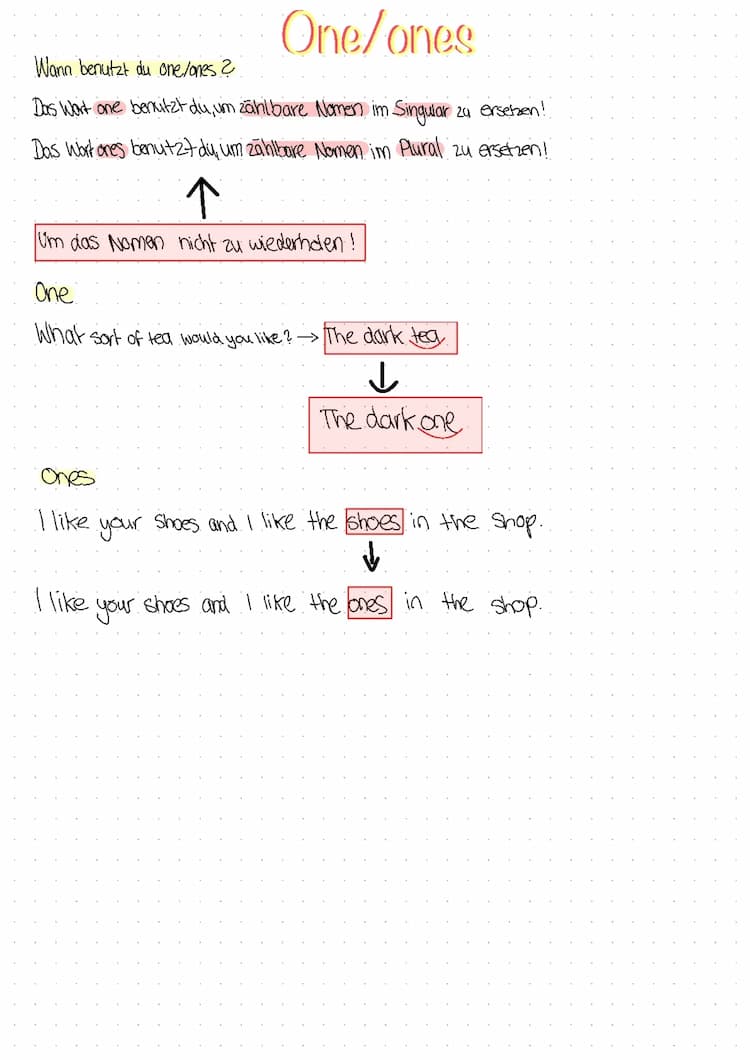 One/ones
Wann benutzt du one/ones?
Das Wort one benutzt du, um zählbare Nomen im Singular zu ersetzen!
Das Wort ones benutzt du, um zählbare Nomen im Plural zu ersetzen!
Um das Nomen nicht zu wiederholen!
One
What sort of tea would you like? → The dark tea
The dark one
Ones
I like your shoes and I like the shoes in the shop.
I like your shoes and I like the ones in the shop.